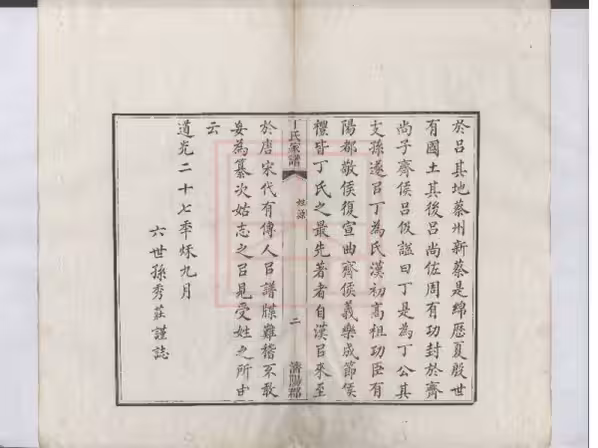 於呂其地蔡州新蔡是綿歷夏殷世
有國土其後呂尚佐周有功封於齊
尚子齊侯呂伋諡曰丁是為丁公其
支孫遂㠯丁為氏漢初高祖功臣有
陽都敬侯復宣曲齊侯義樂成節侯
禮皆丁氏之最先著者自漢㠯來至
丁氏家譜
姓源
二
濟陽郡
於唐宋代有傳人㠯譜牒難稽不敢
妄為纂次姑志之㠯見受姓之所由
云
道光二十七年秌九月
六世孫秀莊謹誌